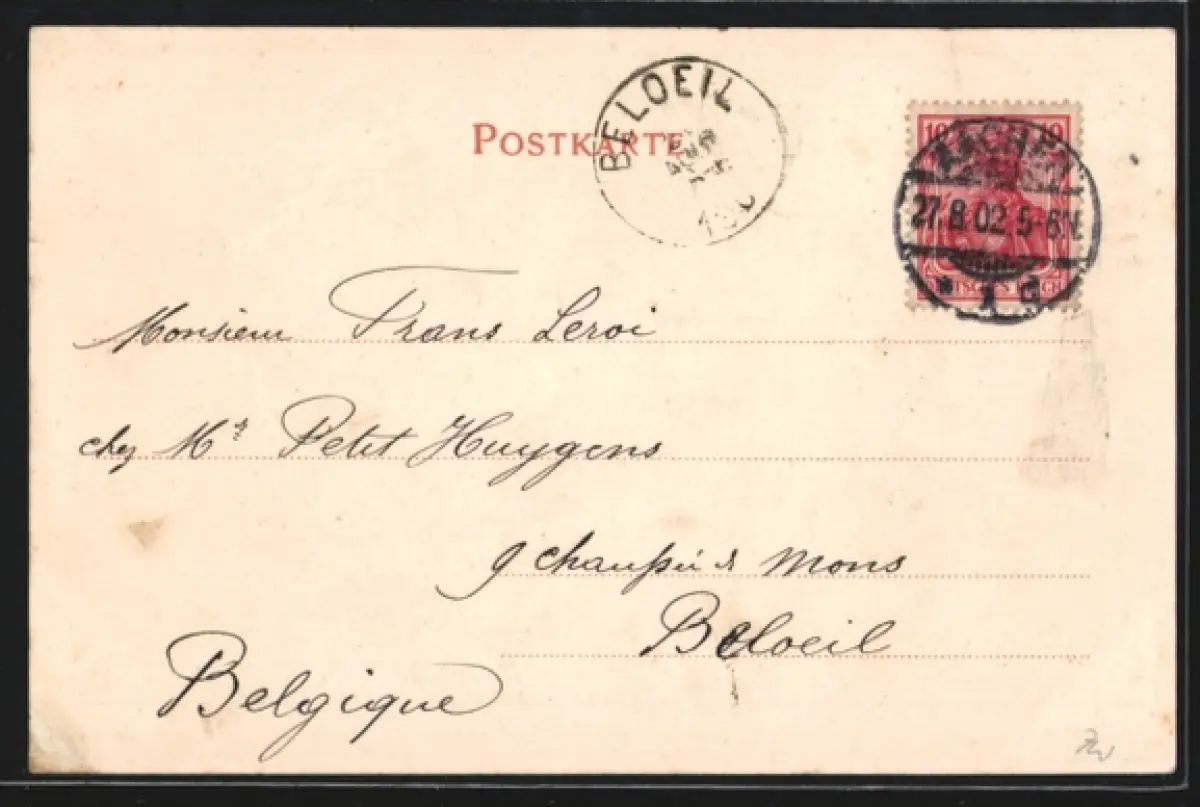 POSTKARTE
BELOEIL
10 10
AACHEN
27.8.02.5-6N.
* 1 c
Monsieur Frans Leroi
chez Mr Petit Huygens
9 chaussée de Mons
Beloeil
Belgique